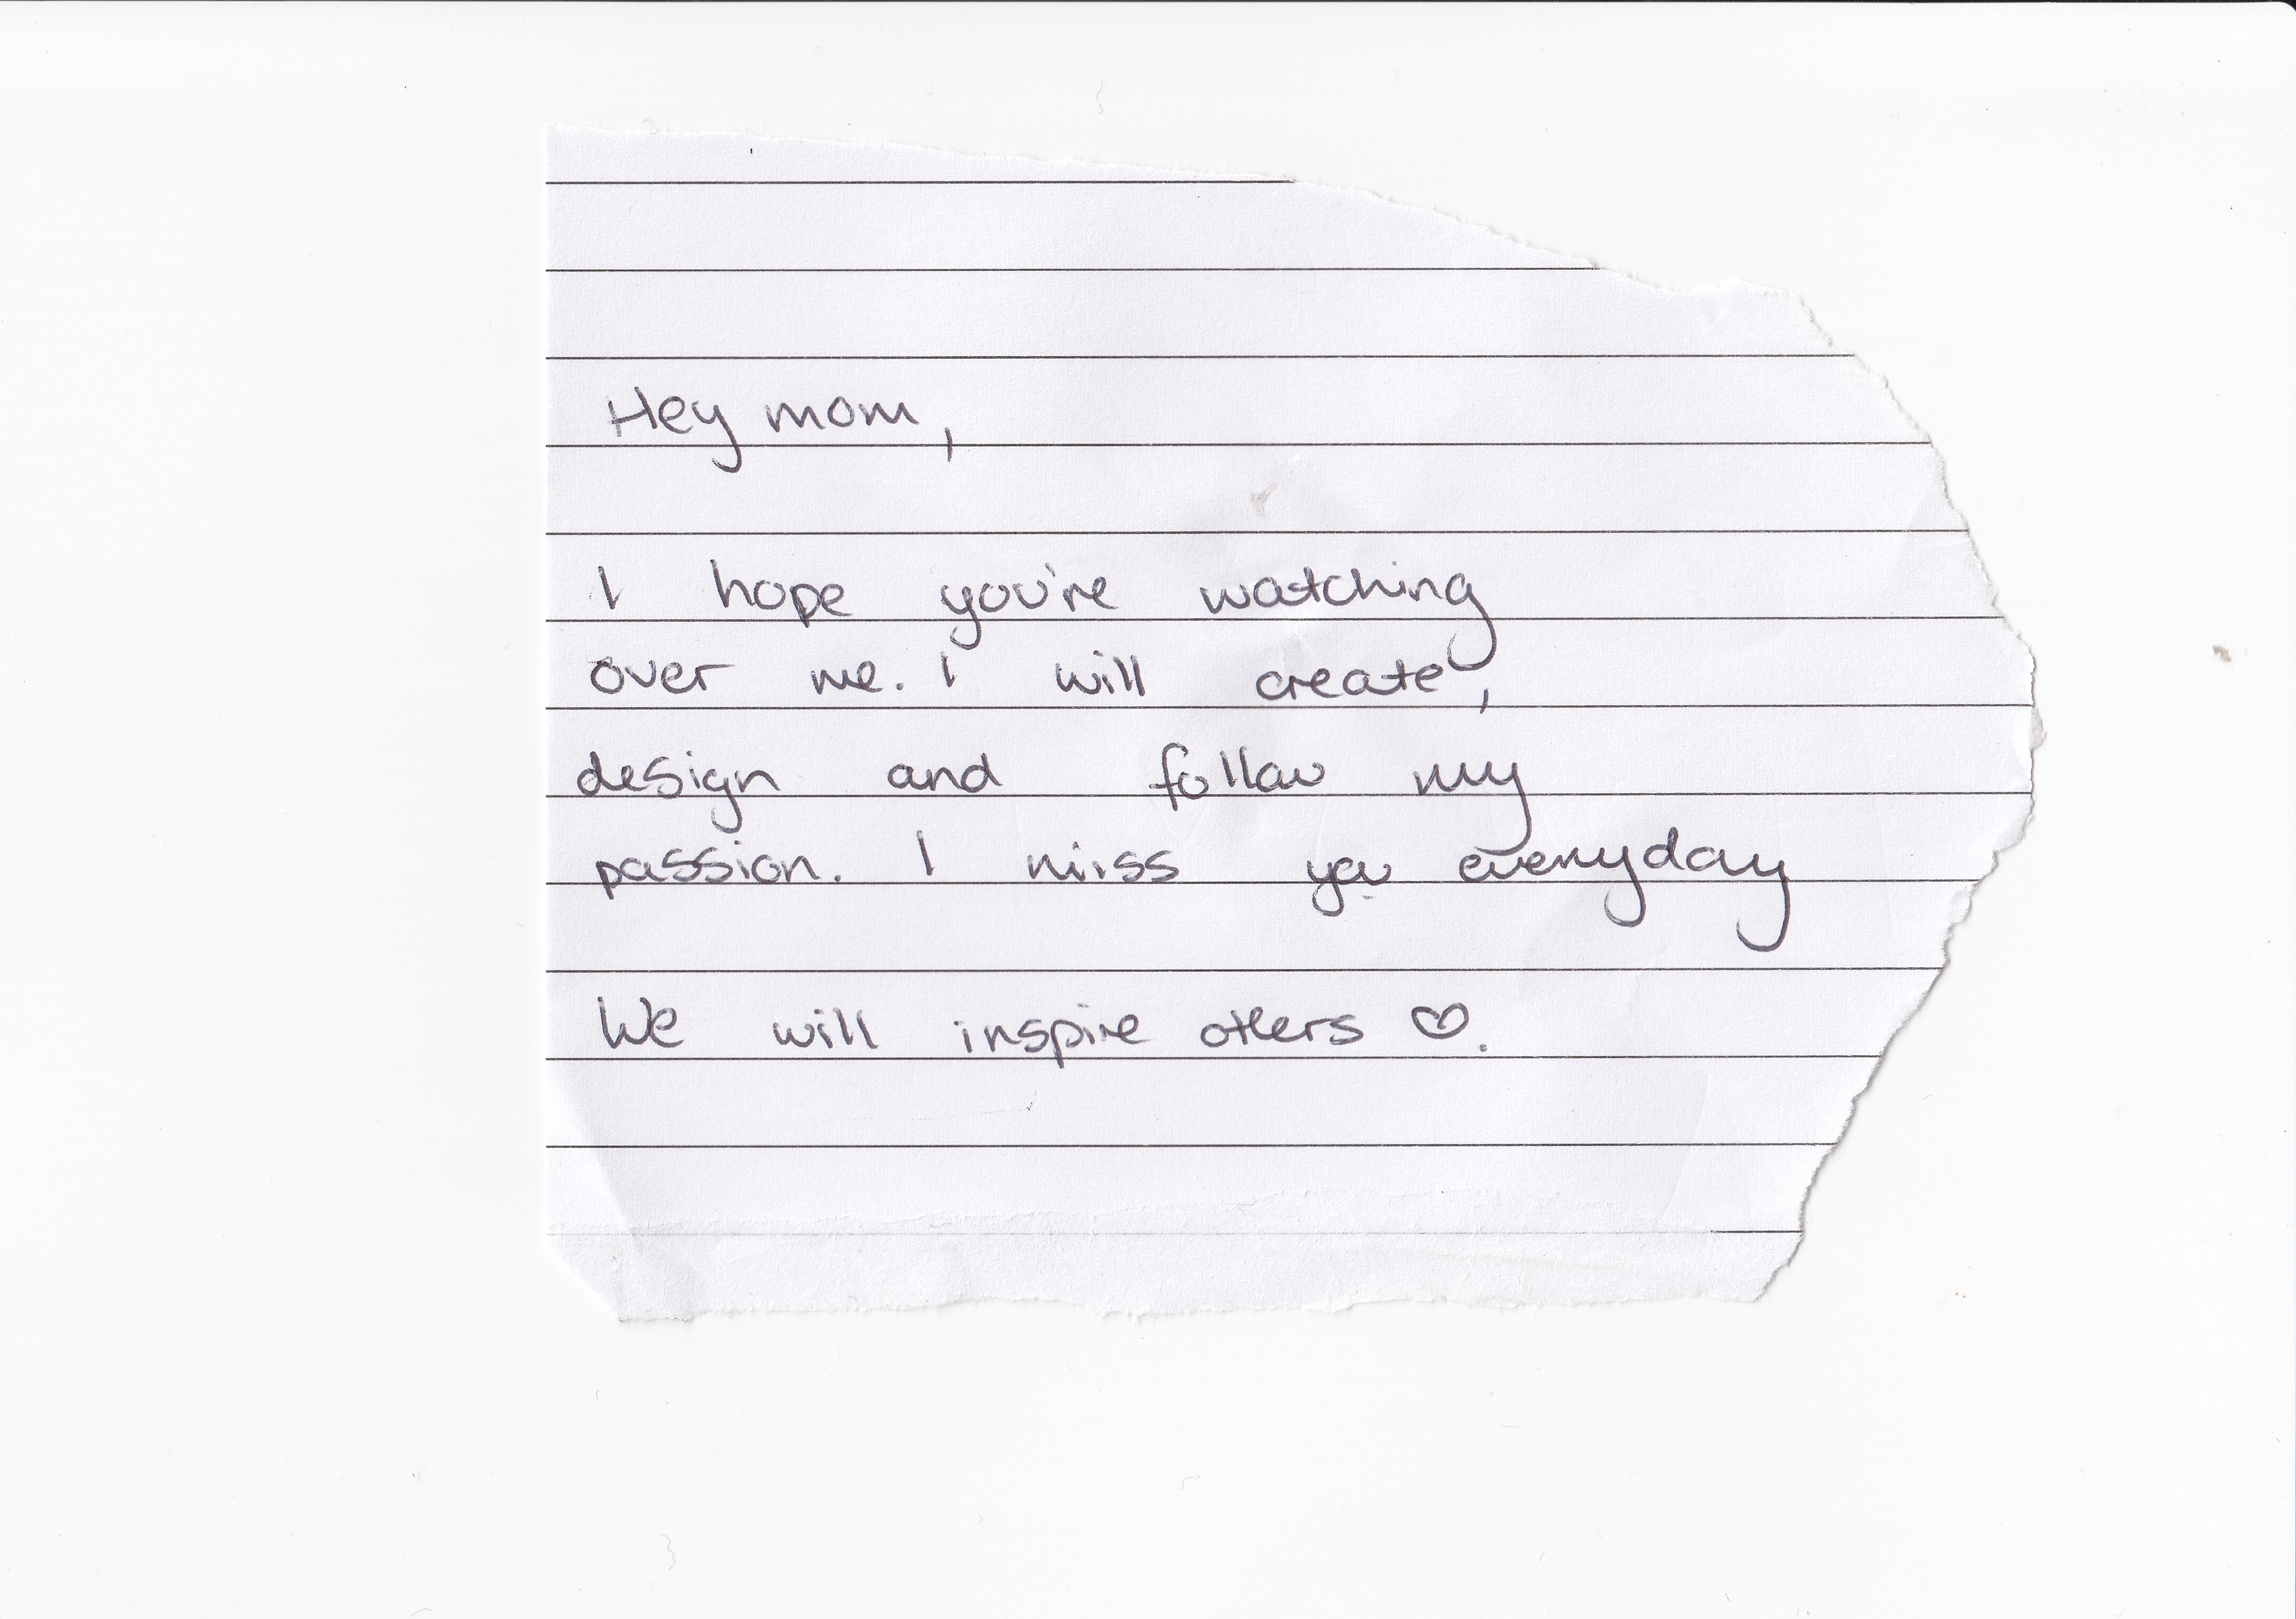 Hey mom,
I hope you're watching
over me. I will create,
design and follow my
passion. I miss you everyday
We will inspire others ♡.